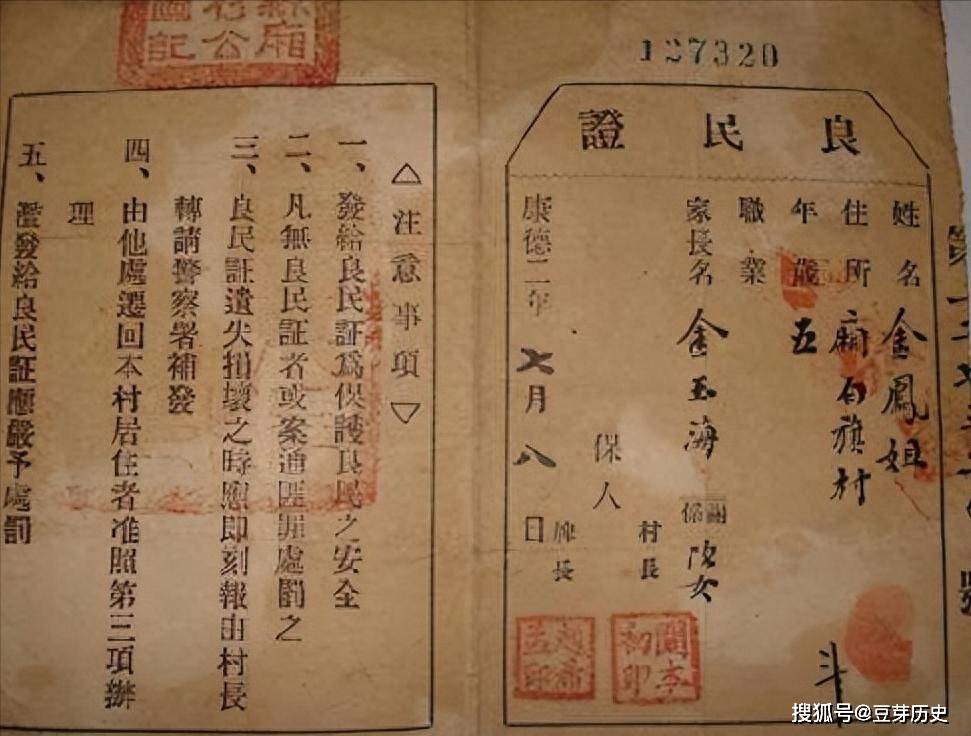 127320
良民證
姓名 金鳳姐
住所 廟白旗村
年歲 五
職業
家長名 金玉海 關係 次女
保人
村長
牌長
康德二年七月八日
斗
△注意事項▽
一、發給良民証爲保護良民之安全
二、凡無良民証者或案通匪罪處罰之
三、良民証遺失損壞之時應即刻報由村長
轉請警察署補發
四、由他處遷回本村居住者准照第三項辦
理
五、濫發給良民証應嚴予處罰
搜狐号@豆芽历史